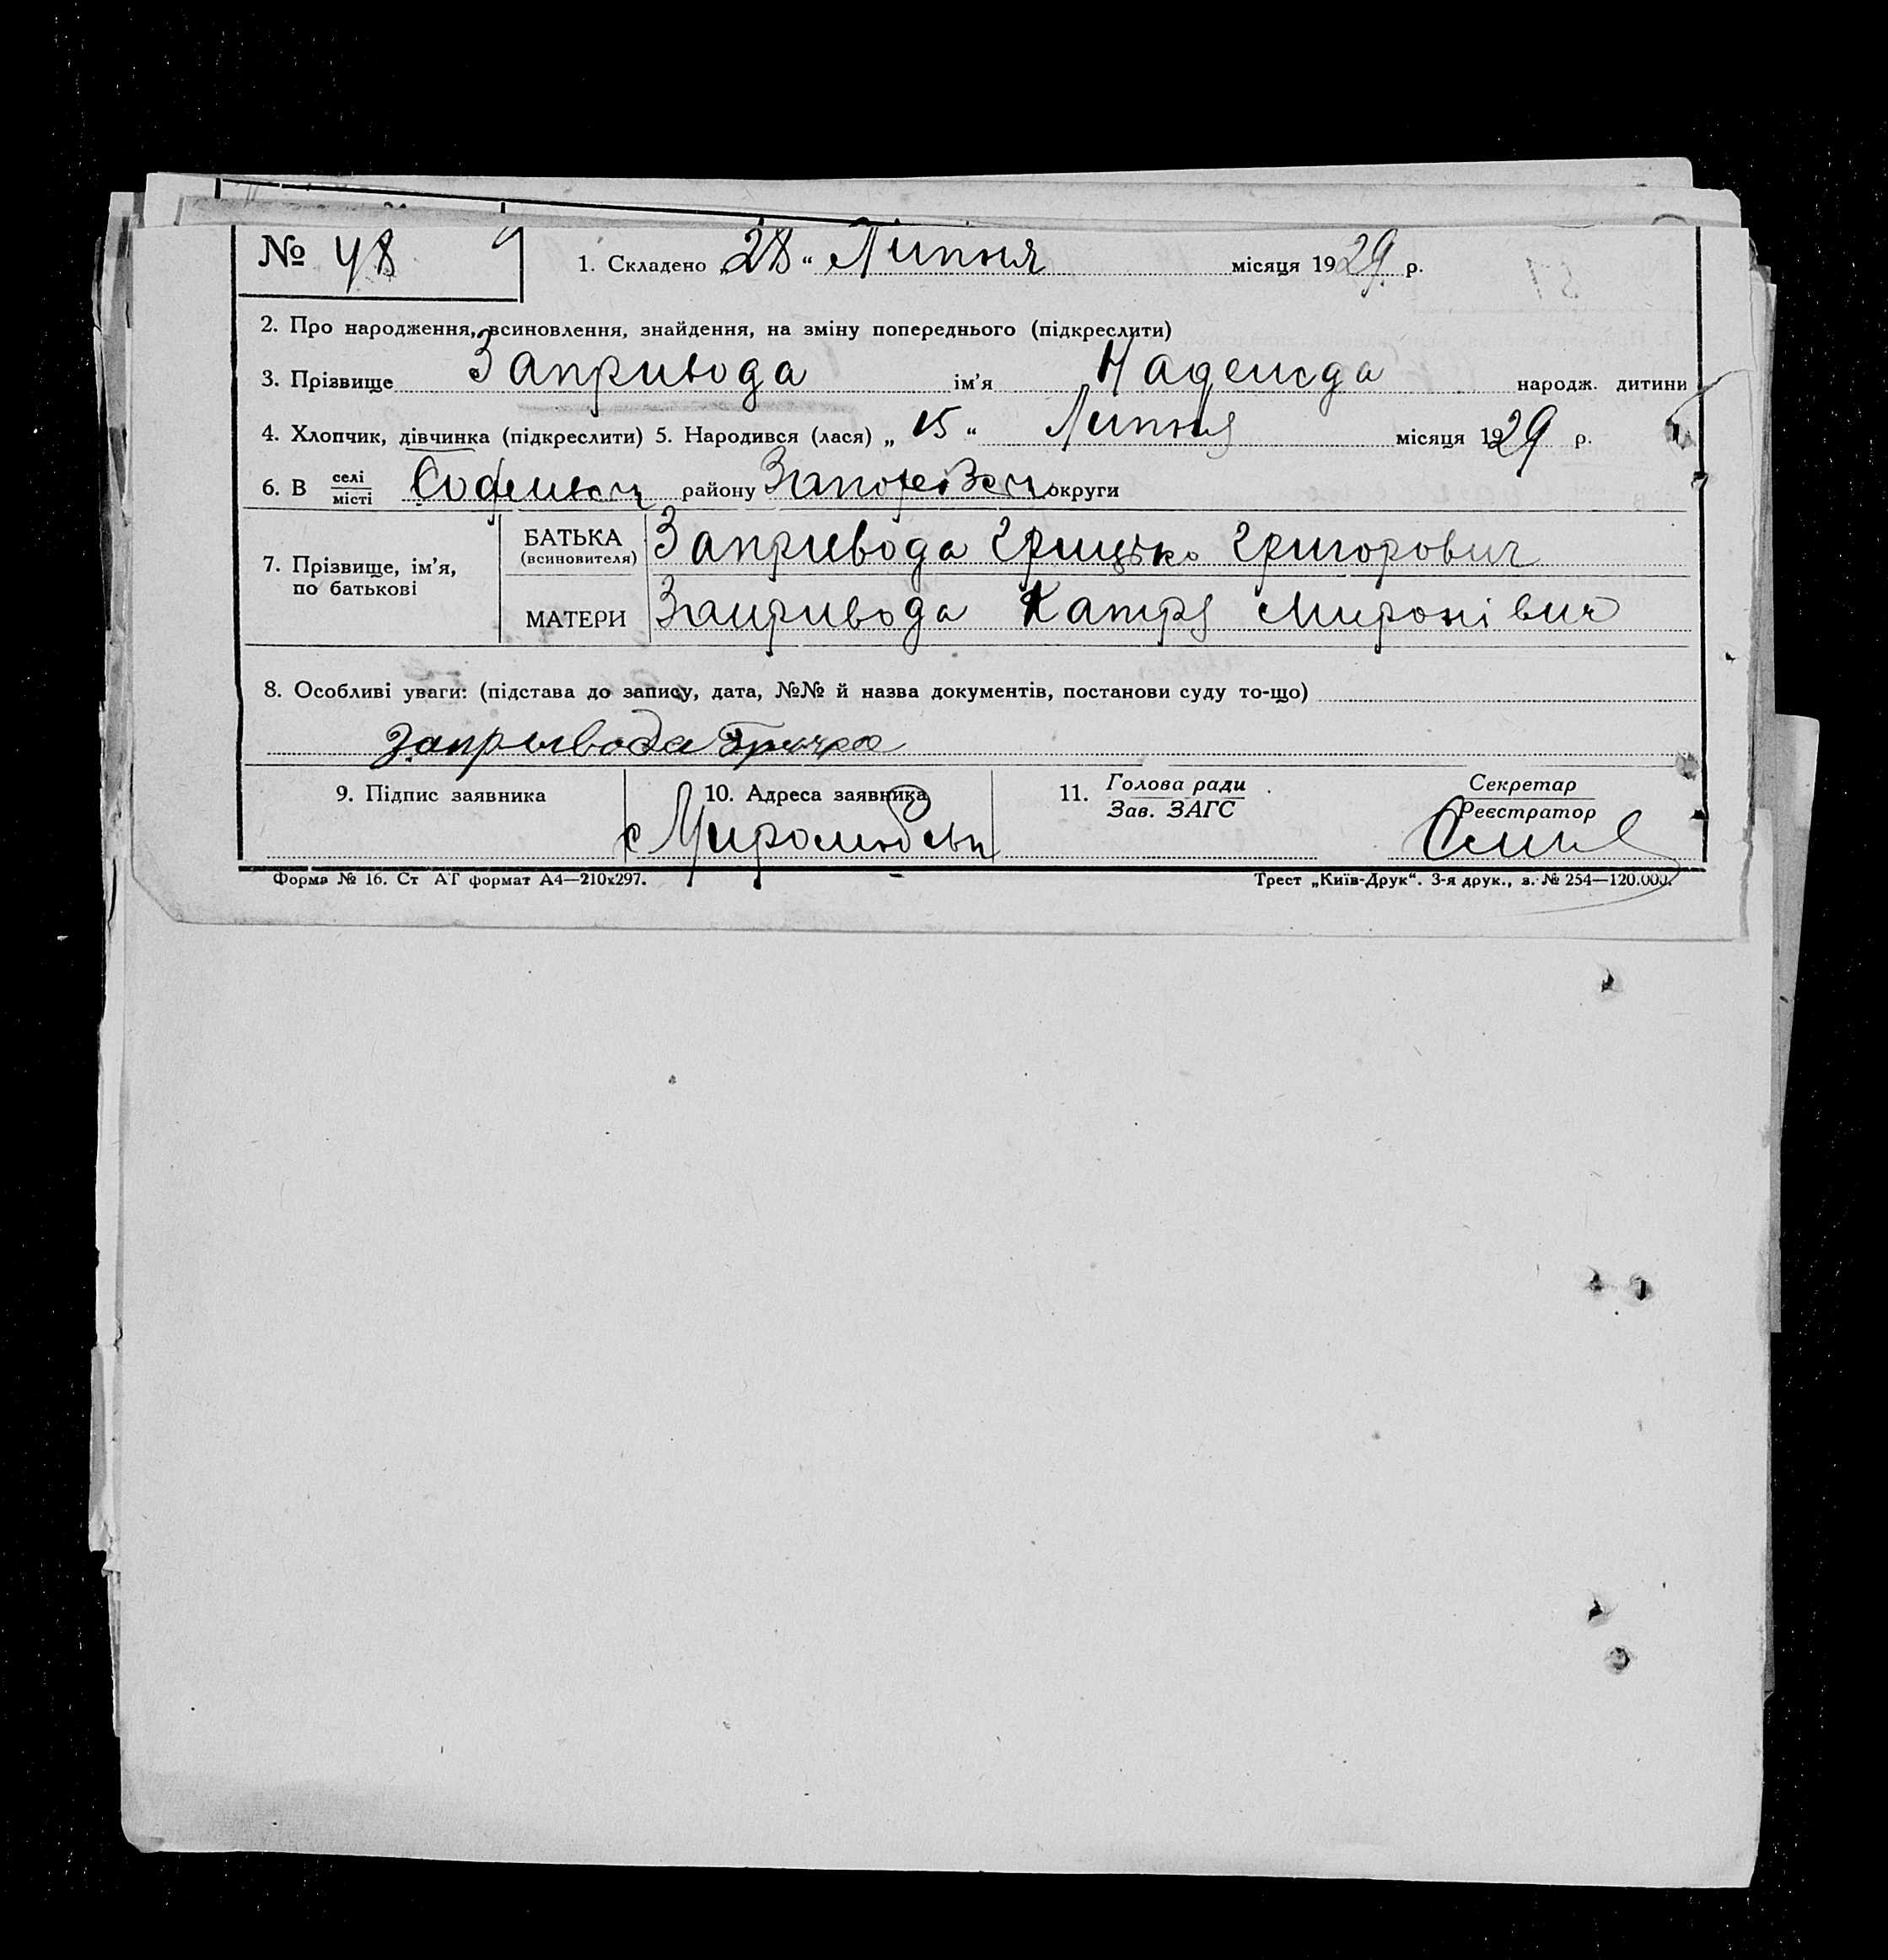 № 48 1. Складено „28“ Липня місяця 1929 р.
2. Про народження, всиновлення, знайдення, на зміну попереднього (підкреслити)
3. Прізвище Запривода ім’я Надежда народж. дитини
4. Хлопчик, дівчинка (підкреслити) 5. Народився (лася) „15“ Липня місяця 1929 р.
6. В селі місті району округи
7. Прізвище, ім’я, по батькові
БАТЬКА (всиновителя) Запривода Грицько Григорович
МАТЕРИ Запривода Катря Миронівич
8. Особливі уваги: (підстава до запису, дата, №№ й назва документів, постанови суду то-що)
Запрывода
9. Підпис заявника 10. Адреса заявника 11. Голова ради Зав. ЗАГС Секретар Реєстратор
с Миролюбовка
Форма № 16. Ст АТ формат А4—210х297. Трест „Київ-Друк“. 3-я друк., з. № 254—120.000.